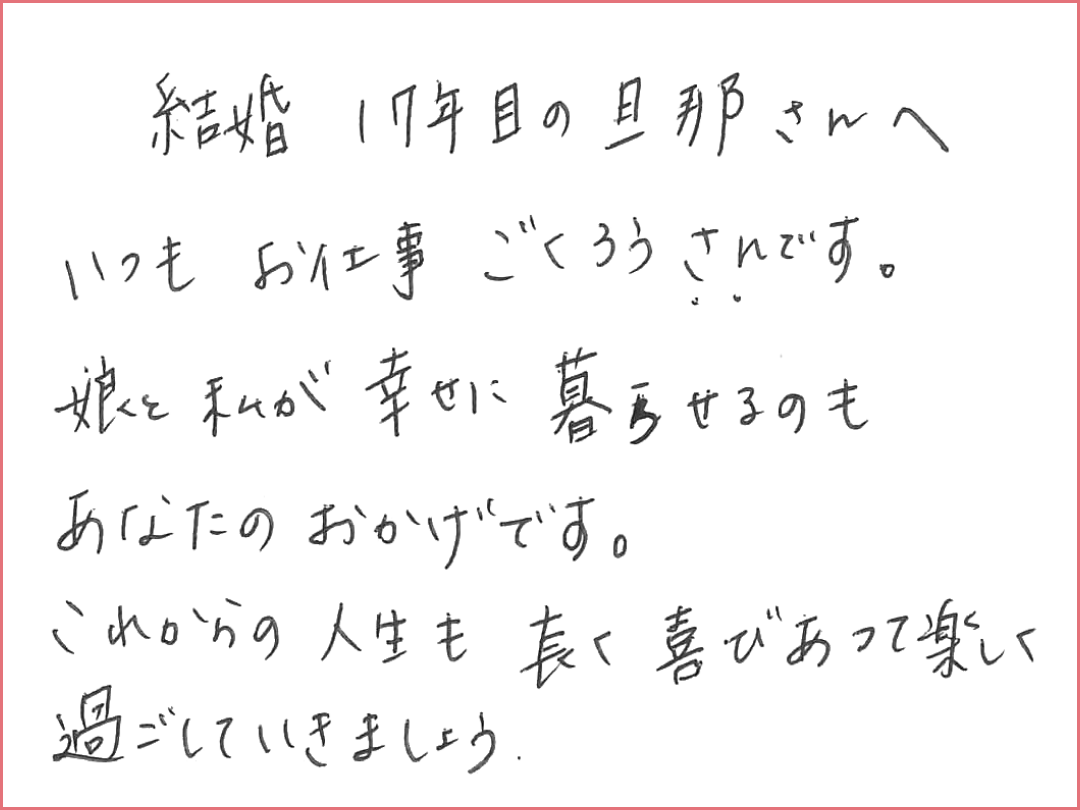 結婚 17年目の旦那さんへ
いつも お仕事 ごくろうさんです。
娘と私が 幸せに 暮らせるのも
あなたの おかげです。
これからの 人生も 長く 喜びあって楽しく
過ごしていきましょう.